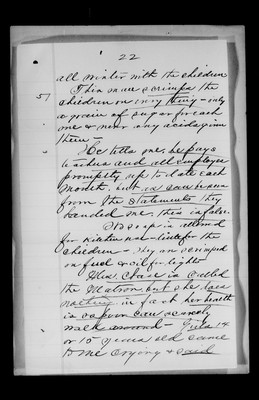 22
all winter with the children
51
This man scrimps the
children on every thing - only
a grain of sugar for each
one & never any acids given
them -
He tells me, he pays
teachers and all employees
promptly up to date each
month, but as can be seen
from the statements they
handed me, this is false.
No soap is allowed
for kitchen use - little for the
children - They are scrimped
on fuel & oil for lights
Miss Chase is called
the Matron, but she does
nothing in fact her health
is so poor can scarcely
walk around - Girls 14
or 15 years old came
to me crying & said